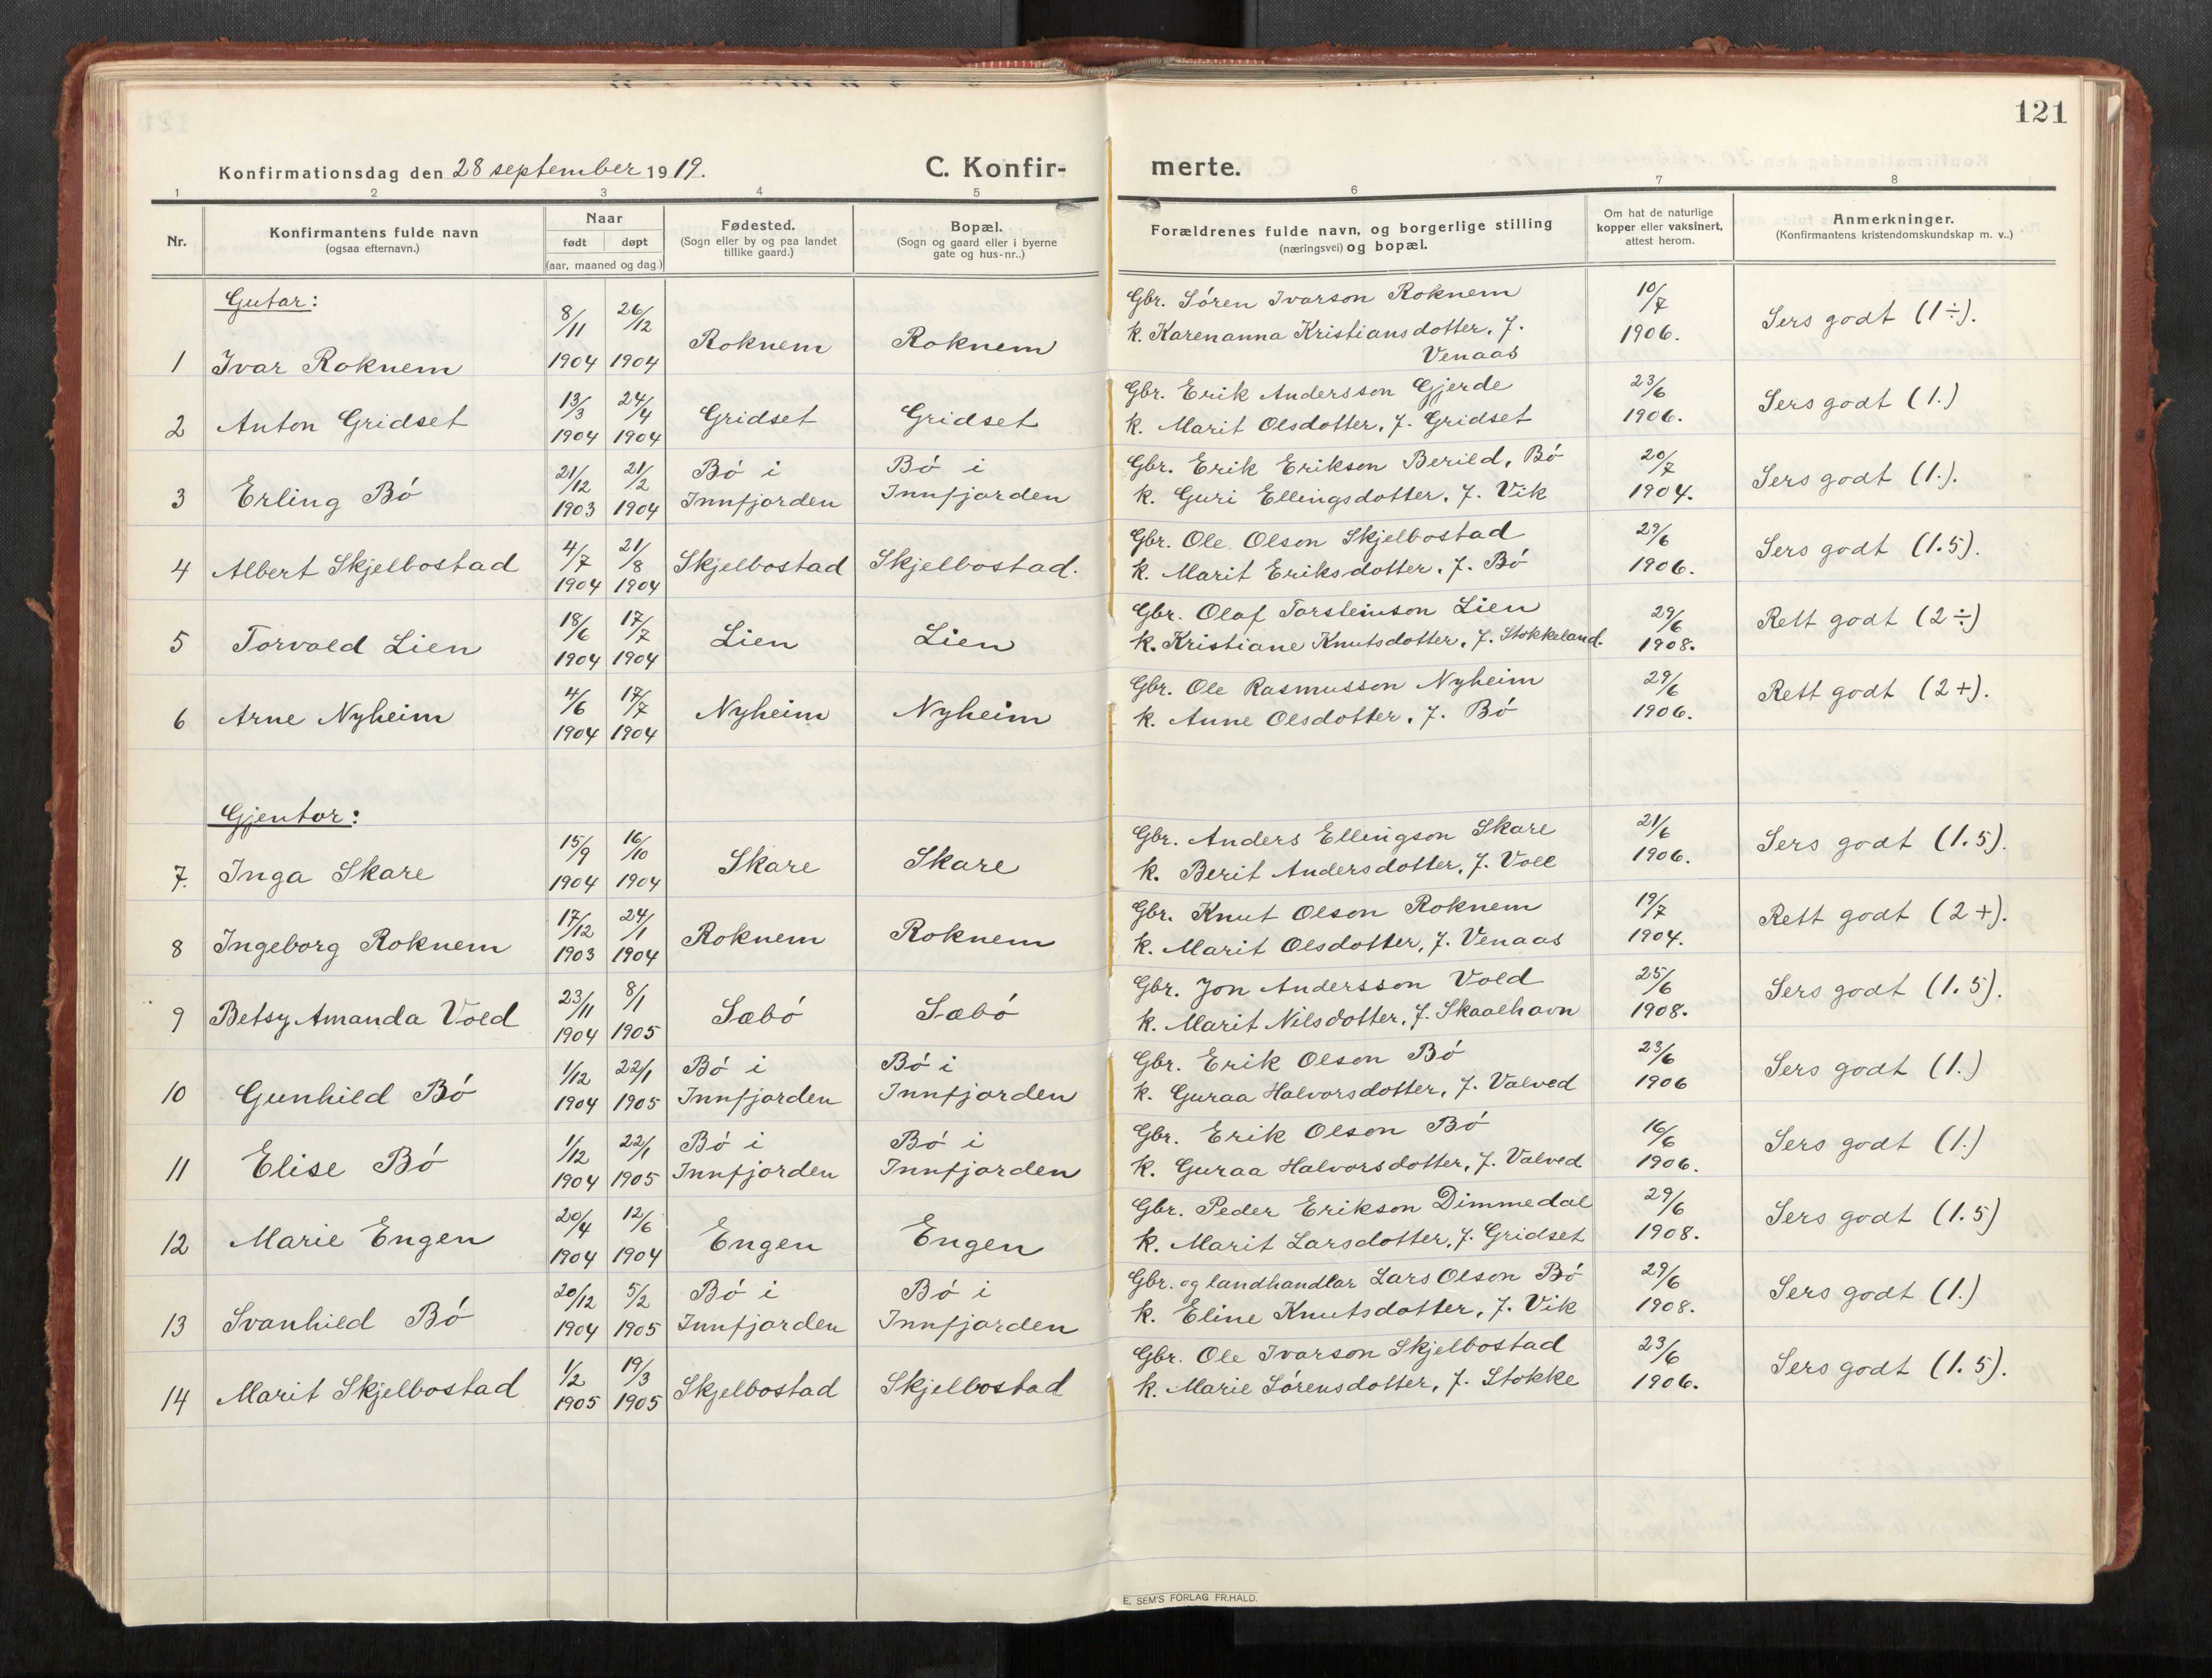 121
Konfirmationsdag den 28 september 1919.
C. Konfir-
merte.
1 2 3 4 5 6 7 8
Nr.
Konfirmantens fulde navn
(ogsaa efternavn.)
Naar
født døpt
(aar, maaned og dag.)
Fødested.
(Sogn eller by og paa landet
tillike gaard.)
Bopæl.
(Sogn og gaard eller i byerne
gate og hus-nr..)
Forældrenes fulde navn, og borgerlige stilling
(næringsvei) og bopæl.
Om hat de naturlige
kopper eller vaksinert,
attest herom.
Anmerkninger.
(Konfirmantens kristendomskundskap m. v..)
Gutar:
1 Ivar Roknem 8/11 1904 26/12 1904 Roknem Roknem
Gbr. Søren Ivarson Roknem
k. Karenanna Kristiansdotter, f.
Venaas
10/7 1906. Sers godt (1÷).
2 Anton Gridset 13/3 1904 24/4 1904 Gridset Gridset
Gbr. Erik Andersson Gjerde
k. Marit Olsdotter, f. Gridset
23/6 1906. Sers godt (1.)
3 Erling Bó 21/12 1903 21/2 1904 Bó i Innfjorden Bó i Innfjorden
Gbr. Erik Erikson Berild, Bó
k. Guri Ellingsdotter, f. Vik
20/7 1904. Sers godt (1.).
4 Albert Skjelbostad 4/7 1904 21/8 1904 Skjelbostad Skjelbostad.
Gbr. Ole Olson Skjelbostad
k. Marit Eriksdotter, f. Bó
29/6 1906. Sers godt (1.5).
5 Torvald Lien 18/6 1904 17/7 1904 Lien Lien
Gbr. Olaf Torsteinson Lien
k. Kristiane Knutsdotter, f. Stokkeland.
29/6 1908. Rett godt (2÷)
6 Arne Nyheim 4/6 1904 17/7 1904 Nyheim Nyheim
Gbr. Ole Rasmusson Nyheim
k. Anne Olsdotter, f. Bó
29/6 1906. Rett godt (2+).
Gjentor:
7. Inga Skare 15/9 1904 16/10 1904 Skare Skare
Gbr. Anders Ellingson Skare
k. Berit Andersdotter, f. Voll
21/6 1906. Sers godt (1.5).
8 Ingeborg Roknem 17/12 1903 24/1 1904 Roknem Roknem
Gbr. Knut Olson Roknem
k. Marit Olsdotter, f. Venaas
19/7 1904. Rett godt (2+).
9 Betsy Amanda Vold 23/11 1904 8/1 1905 Sæbó Sæbó
Gbr. Jon Andersson Vold
k. Marit Nilsdotter, f. Skaalhavn
25/6 1908. Sers godt (1.5).
10 Gunhild Bó 1/12 1904 22/1 1905 Bó i Innfjorden Bó i Innfjorden
Gbr. Erik Olson Bó
k. Guraa Halvorsdotter, f. Valved
23/6 1906 Sers godt (1.)
11 Elise Bó 1/12 1904 22/1 1905 Bó i Innfjorden Bó i Innfjorden
Gbr. Erik Olson Bó
k. Guraa Halvorsdotter, f. Valved
16/6 1906. Sers godt (1.)
12 Marie Engen 20/4 1904 12/6 1904 Engen Engen
Gbr. Peder Erikson Dimmedal
k. Marit Larsdotter, f. Gridset
29/6 1908. Sers godt (1.5)
13 Svanhild Bó 20/12 1904 5/2 1905 Bó i Innfjorden Bó i Innfjorden
Gbr. og landhandlar Lars Olson Bó
k. Eline Knutsdotter, f. Vik
29/6 1908. Sers godt (1.)
14 Marit Skjelbostad 1/2 1905 19/3 1905 Skjelbostad Skjelbostad
Gbr. Ole Ivarson Skjelbostad
k. Marie Sórensdotter, f. Stokke
23/6 1906. Sers godt (1.5).
E. SEM'S FORLAG FR.HALD.